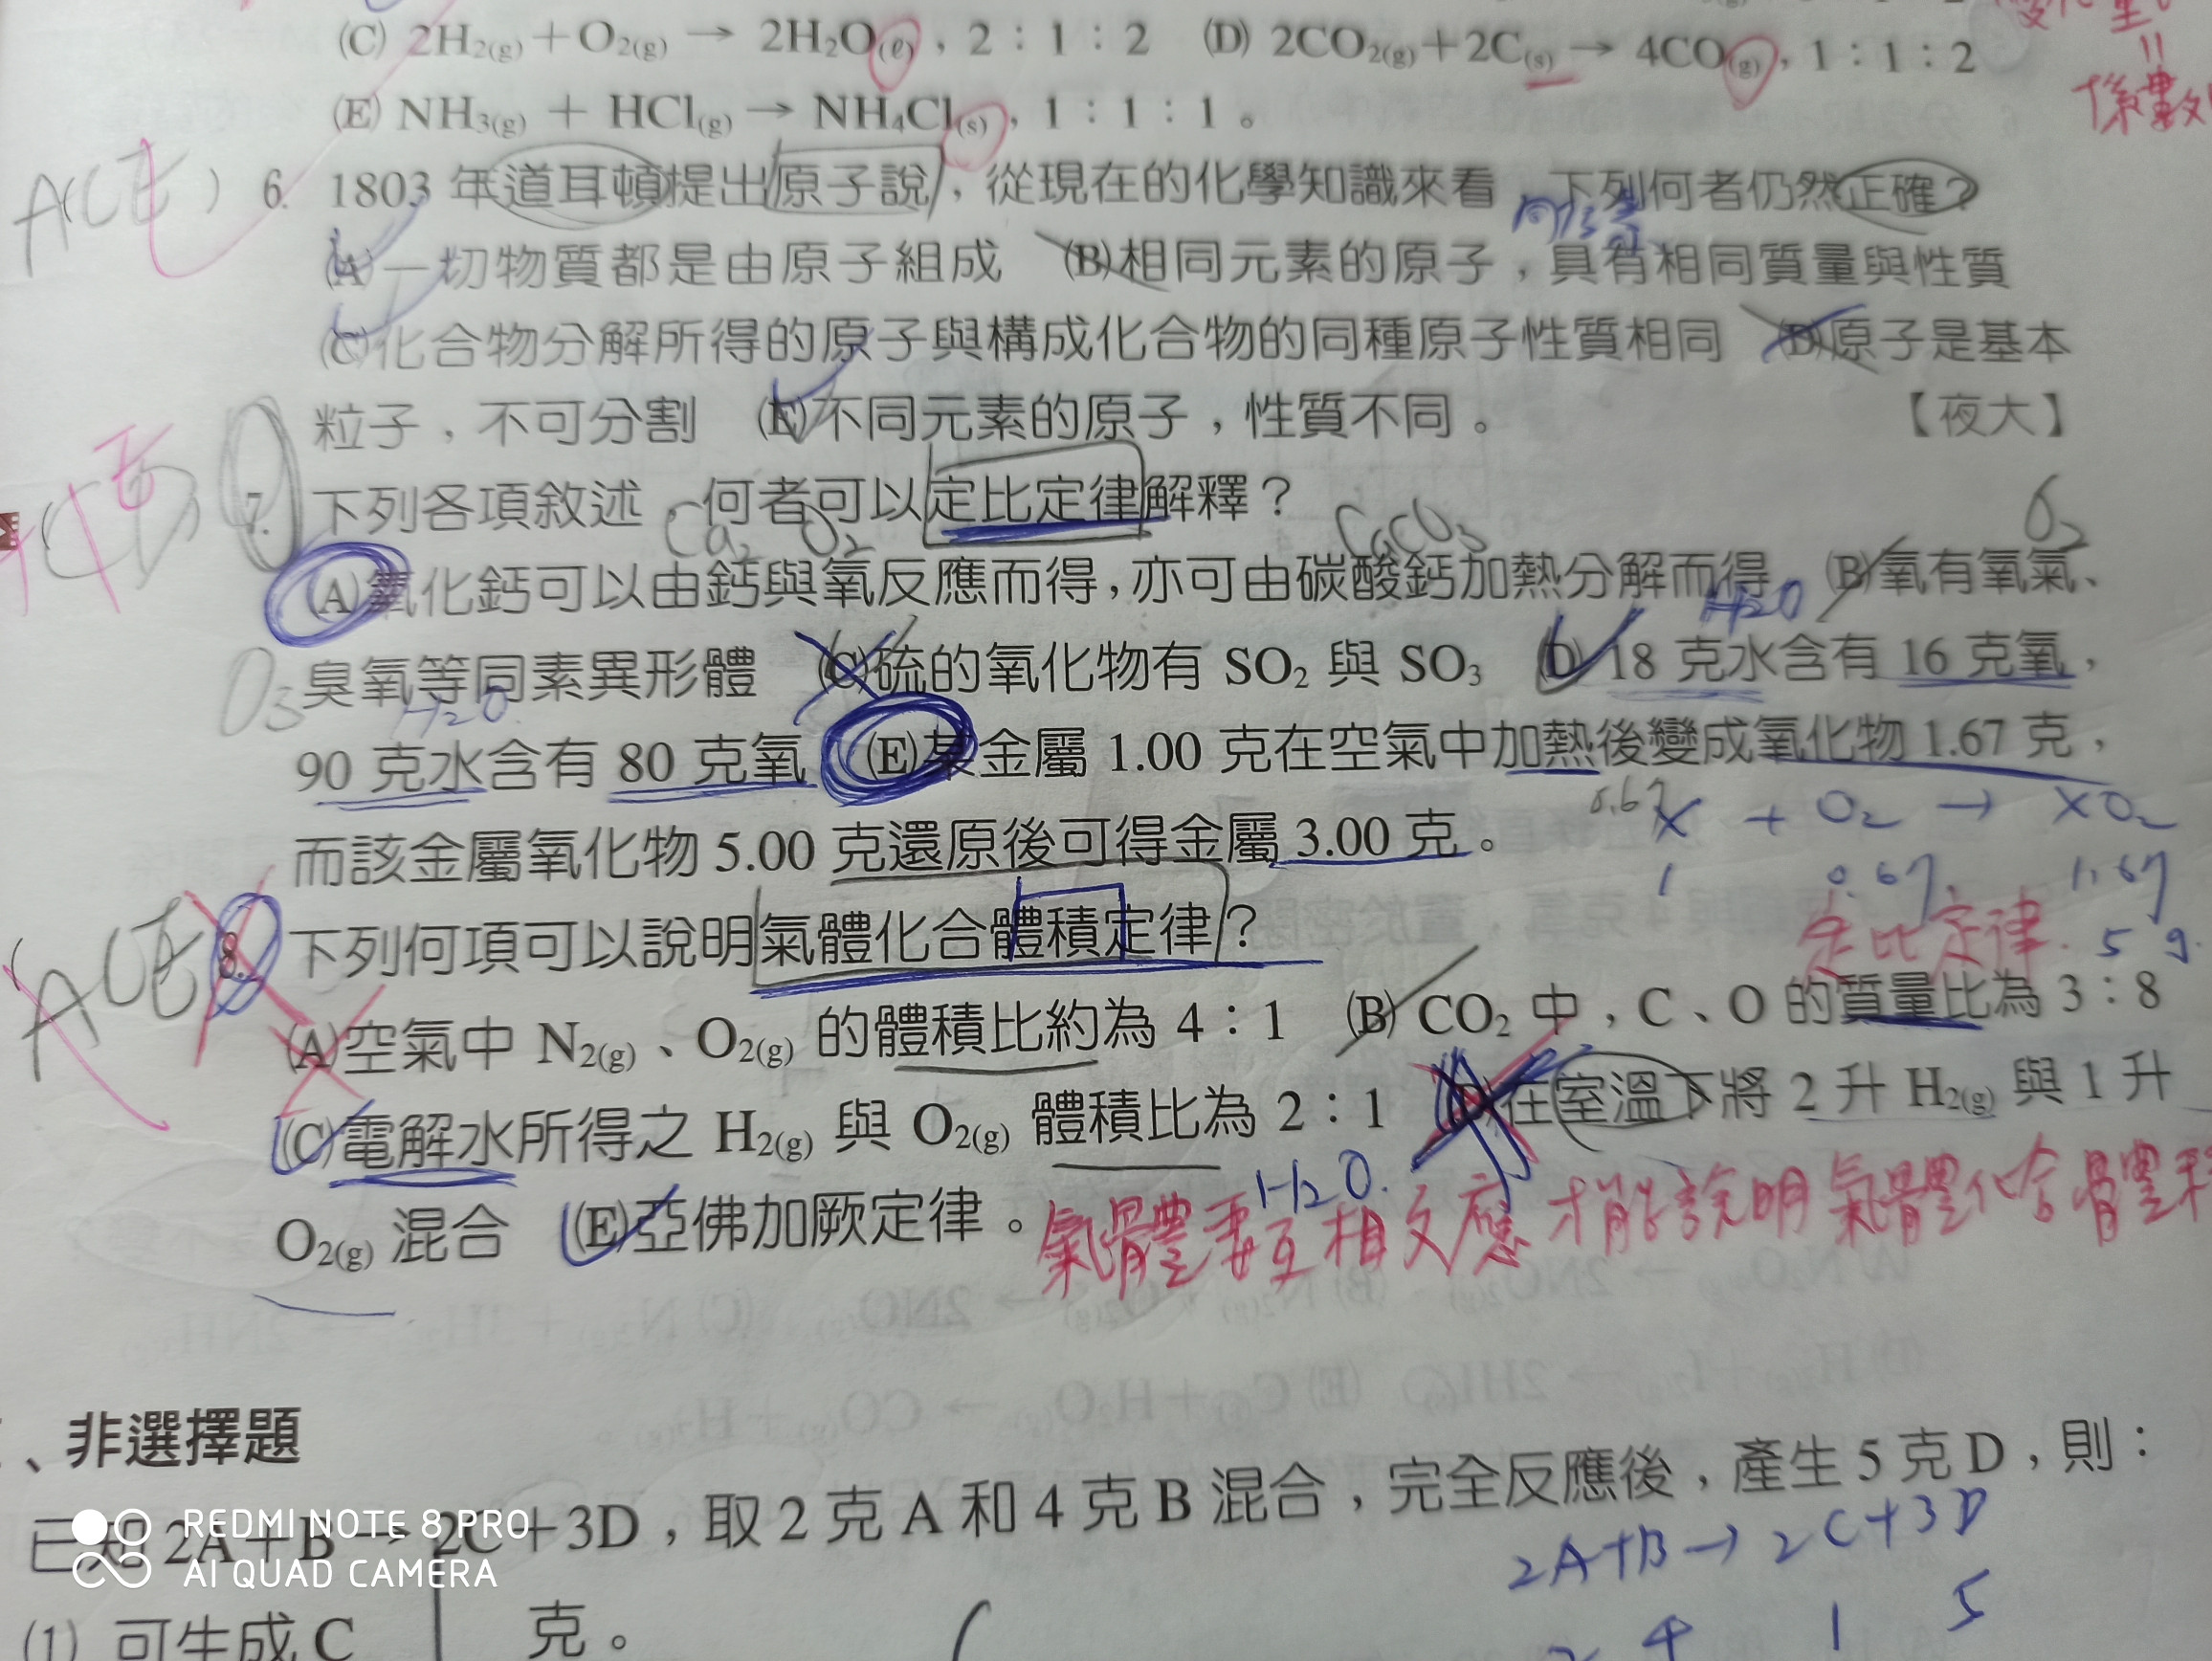 (C) 2H₂(g)+O₂(g) → 2H₂O(ℓ),2:1:2 (D) 2CO₂(g)+2C(s)→ 4CO(g),1:1:2
=
係數
(E) NH₃(g) + HCl(g)→ NH₄Cl(s),1:1:1。
ACE ) 6. 1803 年道耳頓提出原子說,從現在的化學知識來看,下列何者仍然正確?
(A)一切物質都是由原子組成 (B)相同元素的原子,具有相同質量與性質
(C)化合物分解所得的原子與構成化合物的同種原子性質相同 (D)原子是基本
粒子,不可分割 (E)不同元素的原子,性質不同。 【夜大】
7. 下列各項敘述,何者可以定比定律解釋?
Ca₂ O₂ CaCO₃ O₂
(A)氧化鈣可以由鈣與氧反應而得,亦可由碳酸鈣加熱分解而得 (B)氧有氧氣、
H2O
O₃ 臭氧等同素異形體 (C)硫的氧化物有 SO₂ 與 SO₃ (D) 18 克水含有 16 克氧,
H2O
90 克水含有 80 克氧 (E)某金屬 1.00 克在空氣中加熱後變成氧化物 1.67 克,
0.67 X + O₂ → XO₂
而該金屬氧化物 5.00 克還原後可得金屬 3.00 克。
1 0.67 1.67
定比定律. 5 g.
ACE 8. 下列何項可以說明氣體化合體積定律?
(A)空氣中 N₂(g)、O₂(g) 的體積比約為 4:1 (B) CO₂ 中,C、O 的質量比為 3:8
(C)電解水所得之 H₂(g) 與 O₂(g) 體積比為 2:1 (D)在室溫下將 2 升 H₂(g) 與 1 升
H2O.
O₂(g) 混合 (E)亞佛加厥定律。
氣體要互相反應 才能說明氣體化合體積
、非選擇題
已知 2A+B→ 2C+3D,取 2 克 A 和 4 克 B 混合,完全反應後,產生 5 克 D,則:
2A+B→ 2C+3D
REDMI NOTE 8 PRO
AI QUAD CAMERA
(1) 可生成 C 克。
2 4 1 5